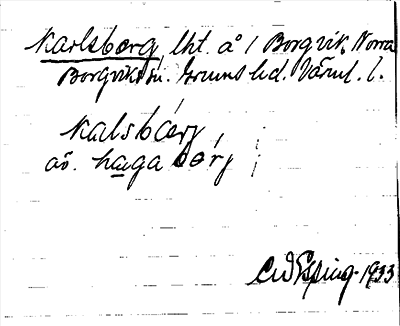 Karlsborg lht. å 1 Borgvik, Norra
Borgviks sn. Grums hd. Värml. l.
Kalsbǽrj
äv. hagabǽrj
CWEsping 1933